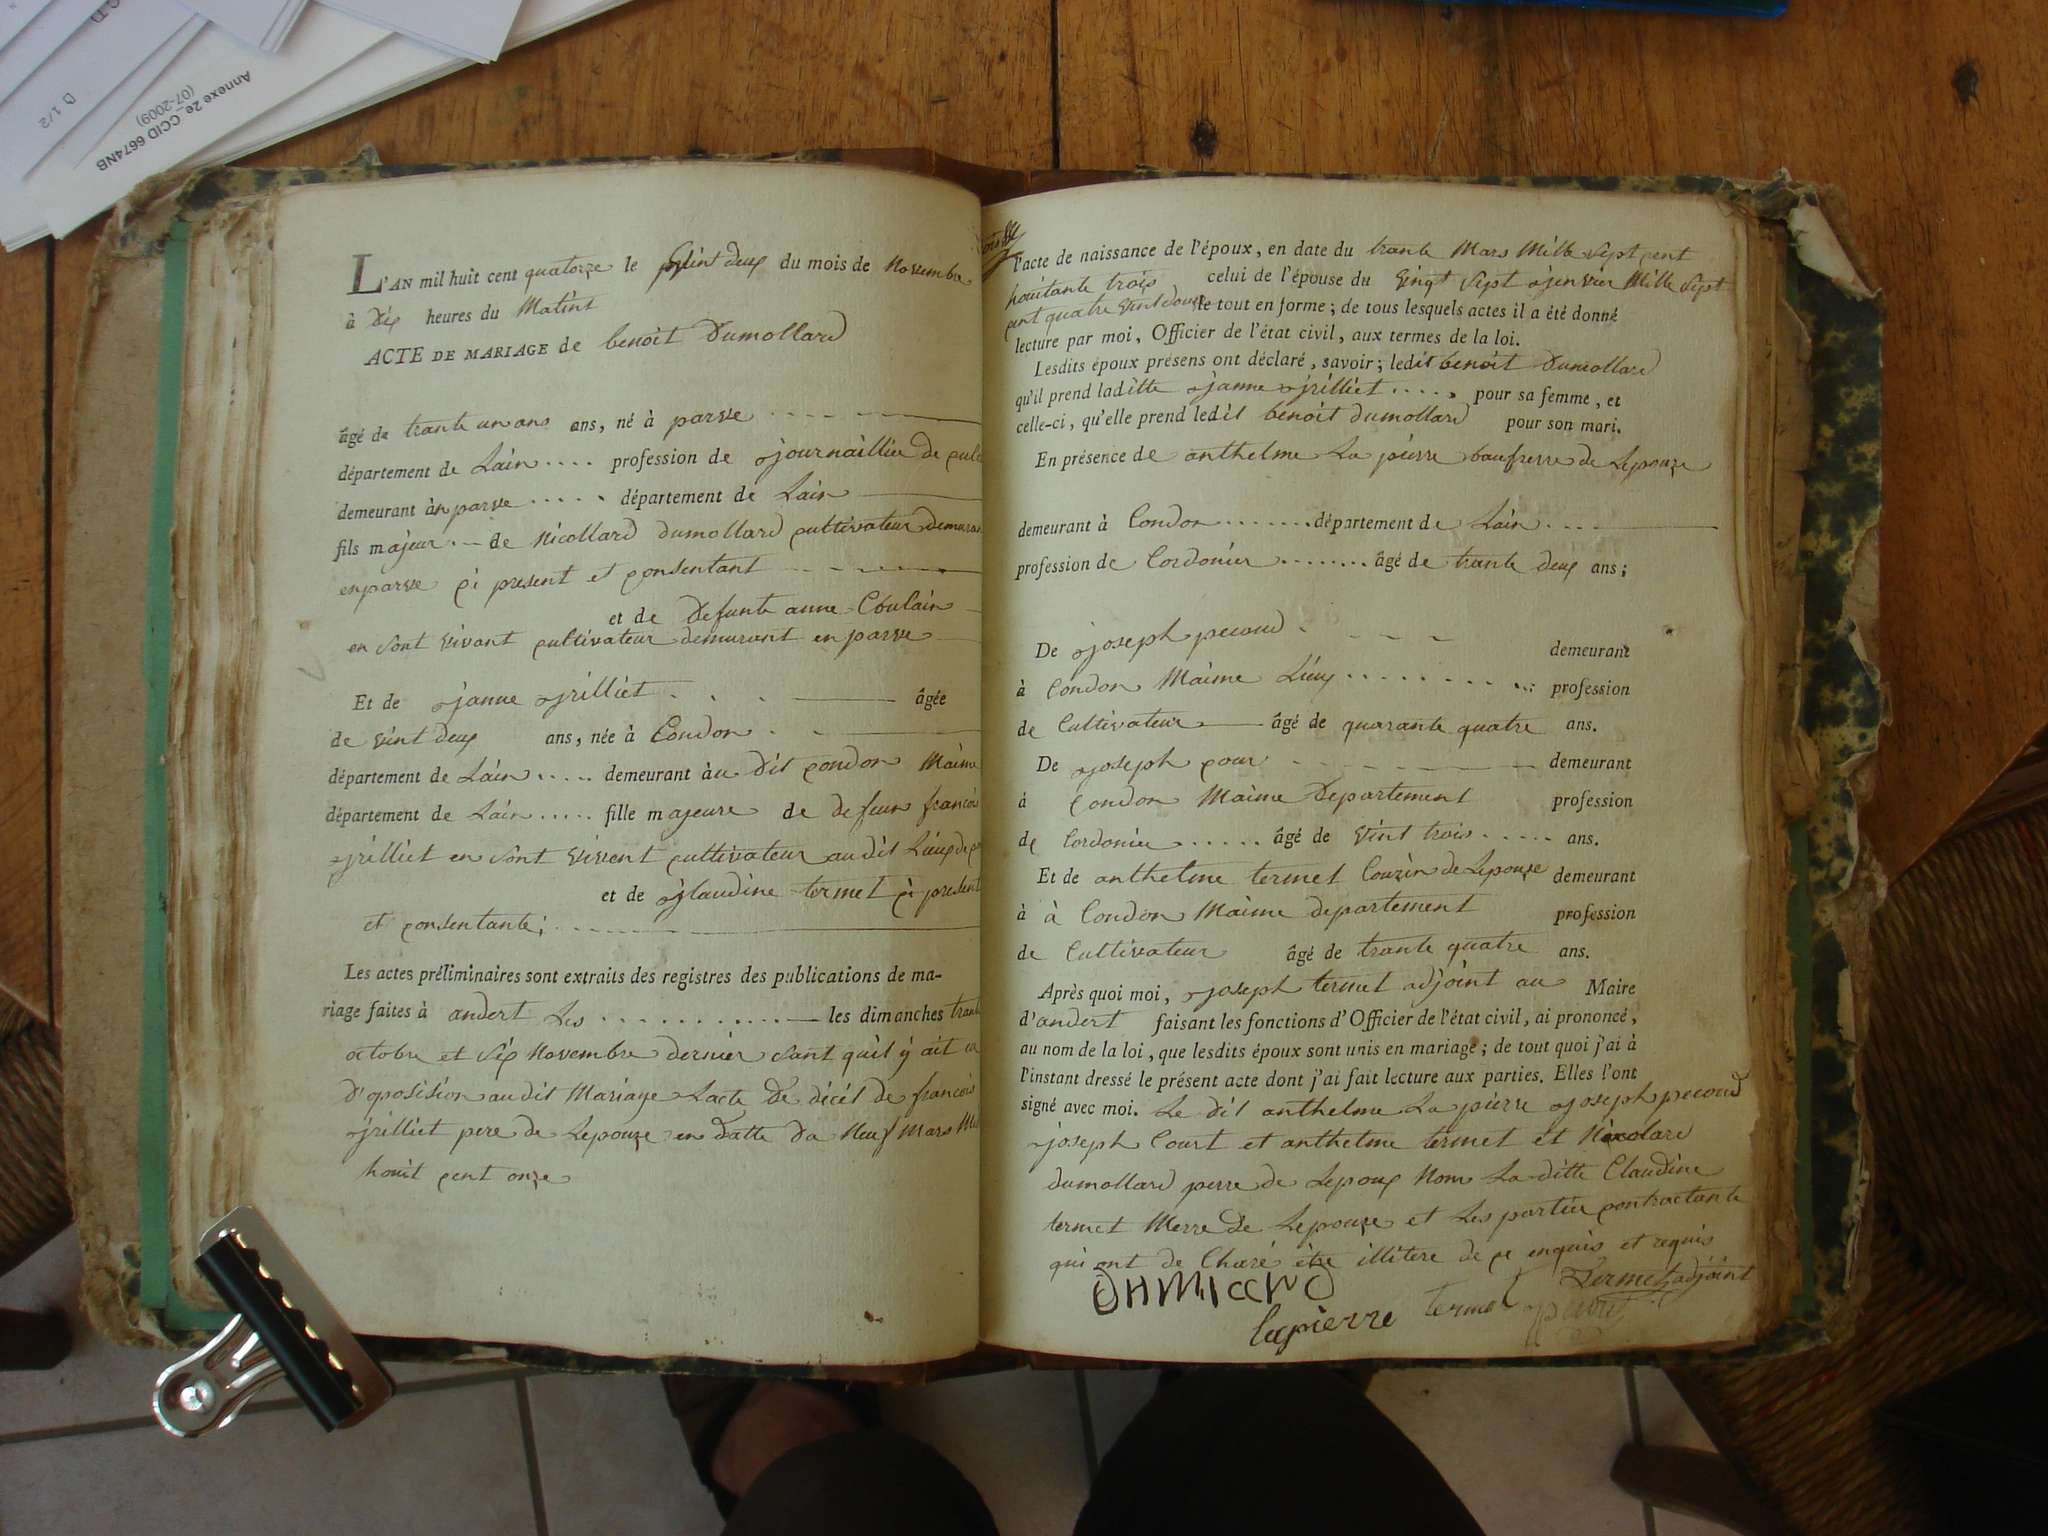 Annexe 2e_CCID 6674NB
(07-2009)
D 1/2
L'AN mil huit cent quatorze le vint deux du mois de Novembre
à Dix heures du Matint
ACTE DE MARIAGE de benoit Dumollard
âgé de trante un ans ans, né à parve
département de Lain .... profession de journaillier de
demeurant àn parve ..... département de Lain
fils majeur de Nicollard dumollard cultivateur demuran
enparve ci present et consentant
et de defunte anne Coulain
en sont vivant cultivateur demurant en parve
Et de janne jrilliet âgée
de vint deux ans, née à Condon
département de Lain ..... demeurant àu dit condon Maime
département de Lain ..... fille majeure de defeun francois
jrilliet en sont vivent cultivateur au dit Lieux de
et de glaudine termet ci present
et consentante;
Les actes préliminaires sont extraits des registres des publications de ma-
riage faites à andert Les les dimanches trante
octobre et six Novembre dernier sant quil y ait
d'oposision au dit Mariage Lacte de décét de francois
jrilliet pere de Lepouze en datte da Neuf Mars
houit cent onze
l'acte de naissance de l'époux, en date du trante Mars Mille sept cent
houitante trois celui de l'épouse du vingt sept jenvier Mille sept
cent quatre vint douze le tout en forme; de tous lesquels actes il a été donné
lecture par moi, Officier de l'état civil, aux termes de la loi.
Lesdits époux présens ont déclaré, savoir; ledit benoit Dumollard
qu'il prend laditte janne jrilliet .... pour sa femme, et
celle-ci, qu'elle prend ledit benoit dumollard pour son mari.
En présence de anthelme La pierre baufrerre de Lepouze
demeurant à Condon ....... département de Lain ....
profession de Cordonier ........ âgé de trante deux ans;
De joseph pecoud demeurant
à Condon Maime Lieux ......... profession
de Cultivateur âgé de quarante quatre ans.
De joseph cour demeurant
à Condon Maime Departement profession
de Cordonier ...... âgé de vint trois ..... ans.
Et de anthelme termet Couzin de Lepouze demeurant
à à Condon Maime departement profession
de Cultivateur âgé de trante quatre ans.
Après quoi moi, joseph termet adjoint au Maire
d'andert faisant les fonctions d'Officier de l'état civil, ai prononcé,
au nom de la loi, que lesdits époux sont unis en mariage; de tout quoi j'ai à
l'instant dressé le présent acte dont j'ai fait lecture aux parties. Elles l'ont
signé avec moi. Le dit anthelme La pierre joseph pecoud
joseph Court et anthelme termet et Nicolard
dumollard perre de Lepoux Nom La ditte Claudine
termet Merre de Lepouze et Les partiee contractante
qui ont de Claré être illitere de ce enquis et requis
termet adjoint
lapierre termet